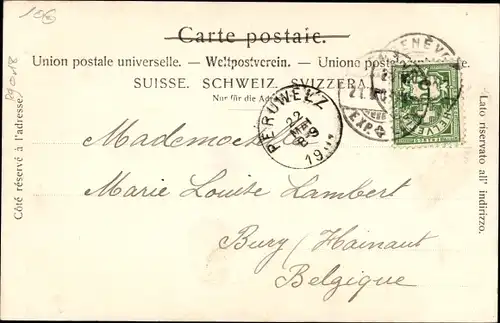 106
Carte postale.
Union postale universelle. — Weltpostverein. — Unione postale
SUISSE. SCHWEIZ. SVIZZERA.
Nur für die
Côté réservé à l'adresse.
Lato riservato all' indirizzo.
GENÈVE
EXP.
PERUWELZ
22
MAI
8-9
19
Mademoiselle
Marie Louise Lambert
Bury (Hainaut
Belgique